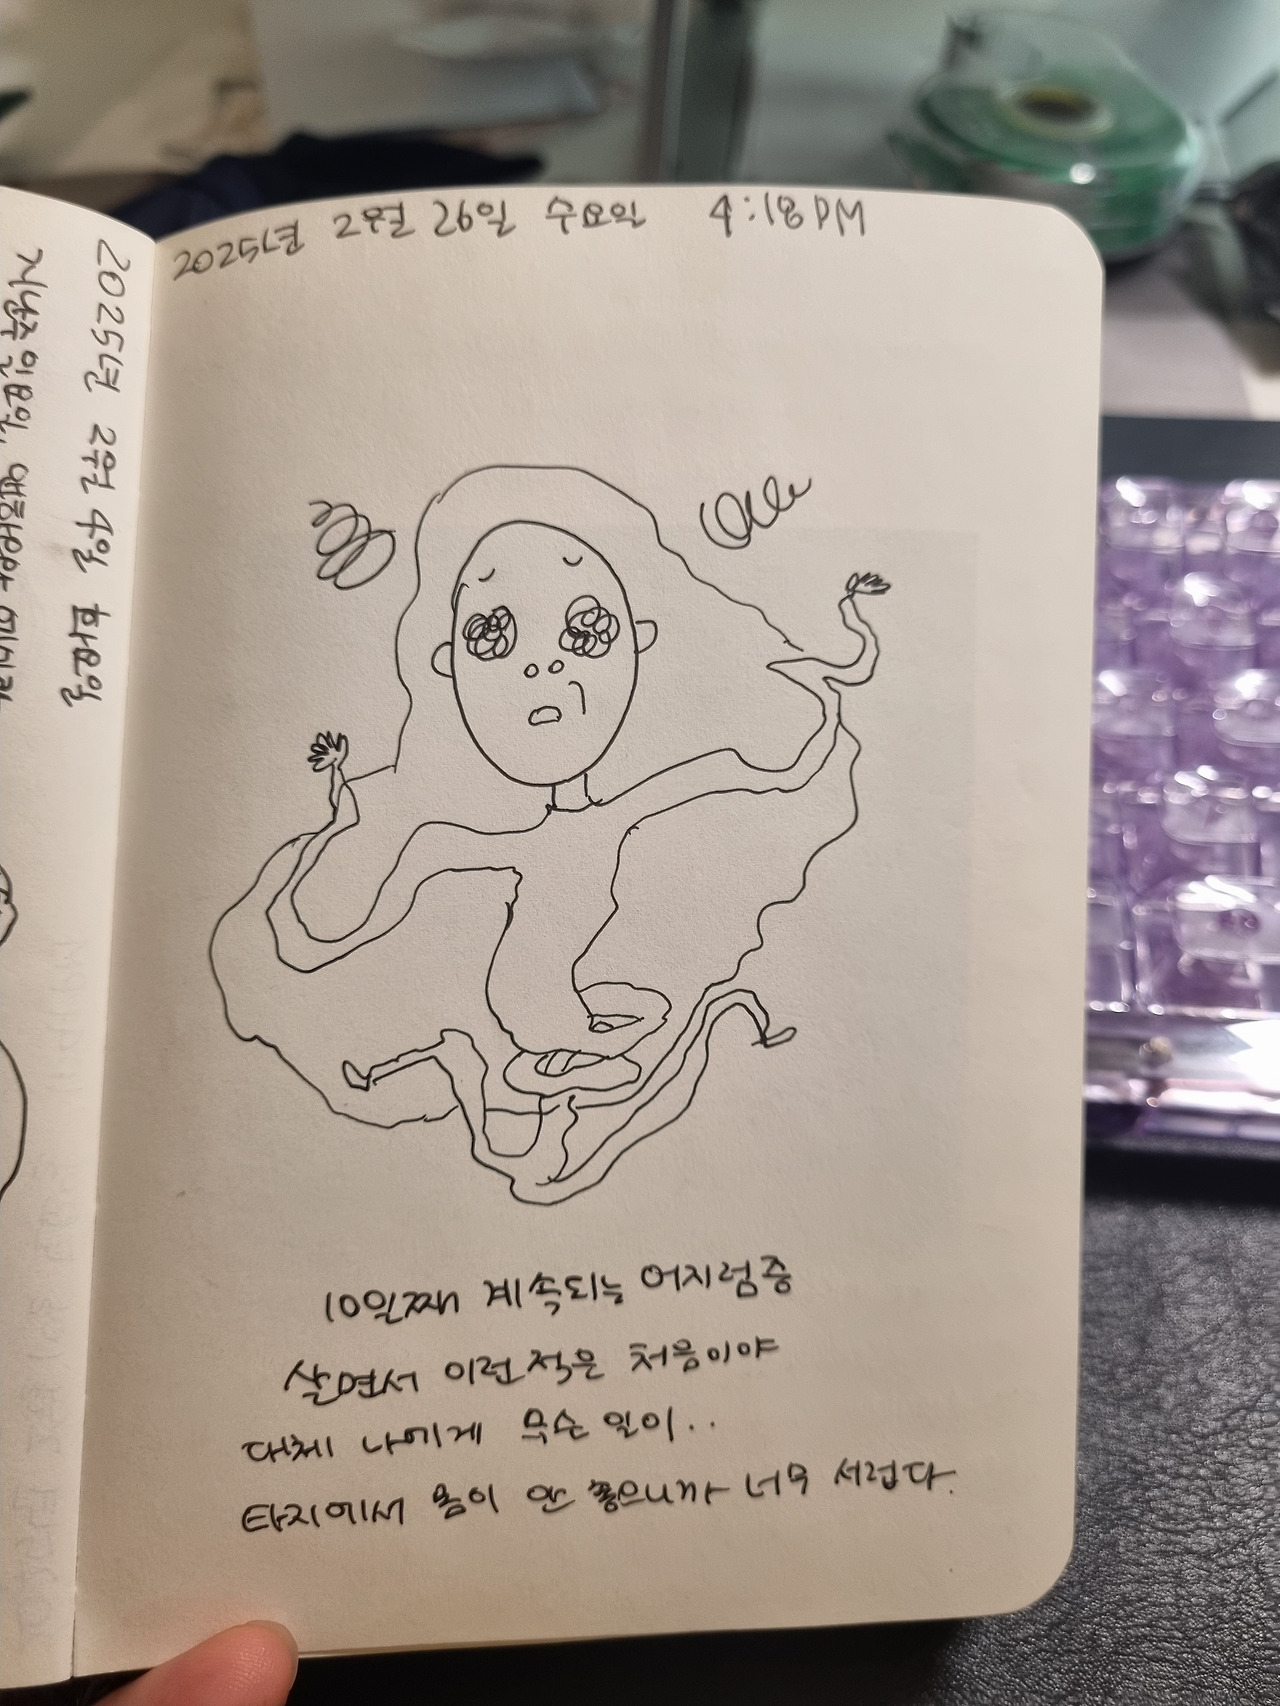 2025년 2월 26일 수요일 4:18PM
10일째 계속되는 어지럼증
살면서 이런적은 처음이야
대체 나에게 무슨 일이..
타지에서 몸이 안 좋으니까 너무 서럽다.
2025년 2월 4일 화요일
지난주 일요일,